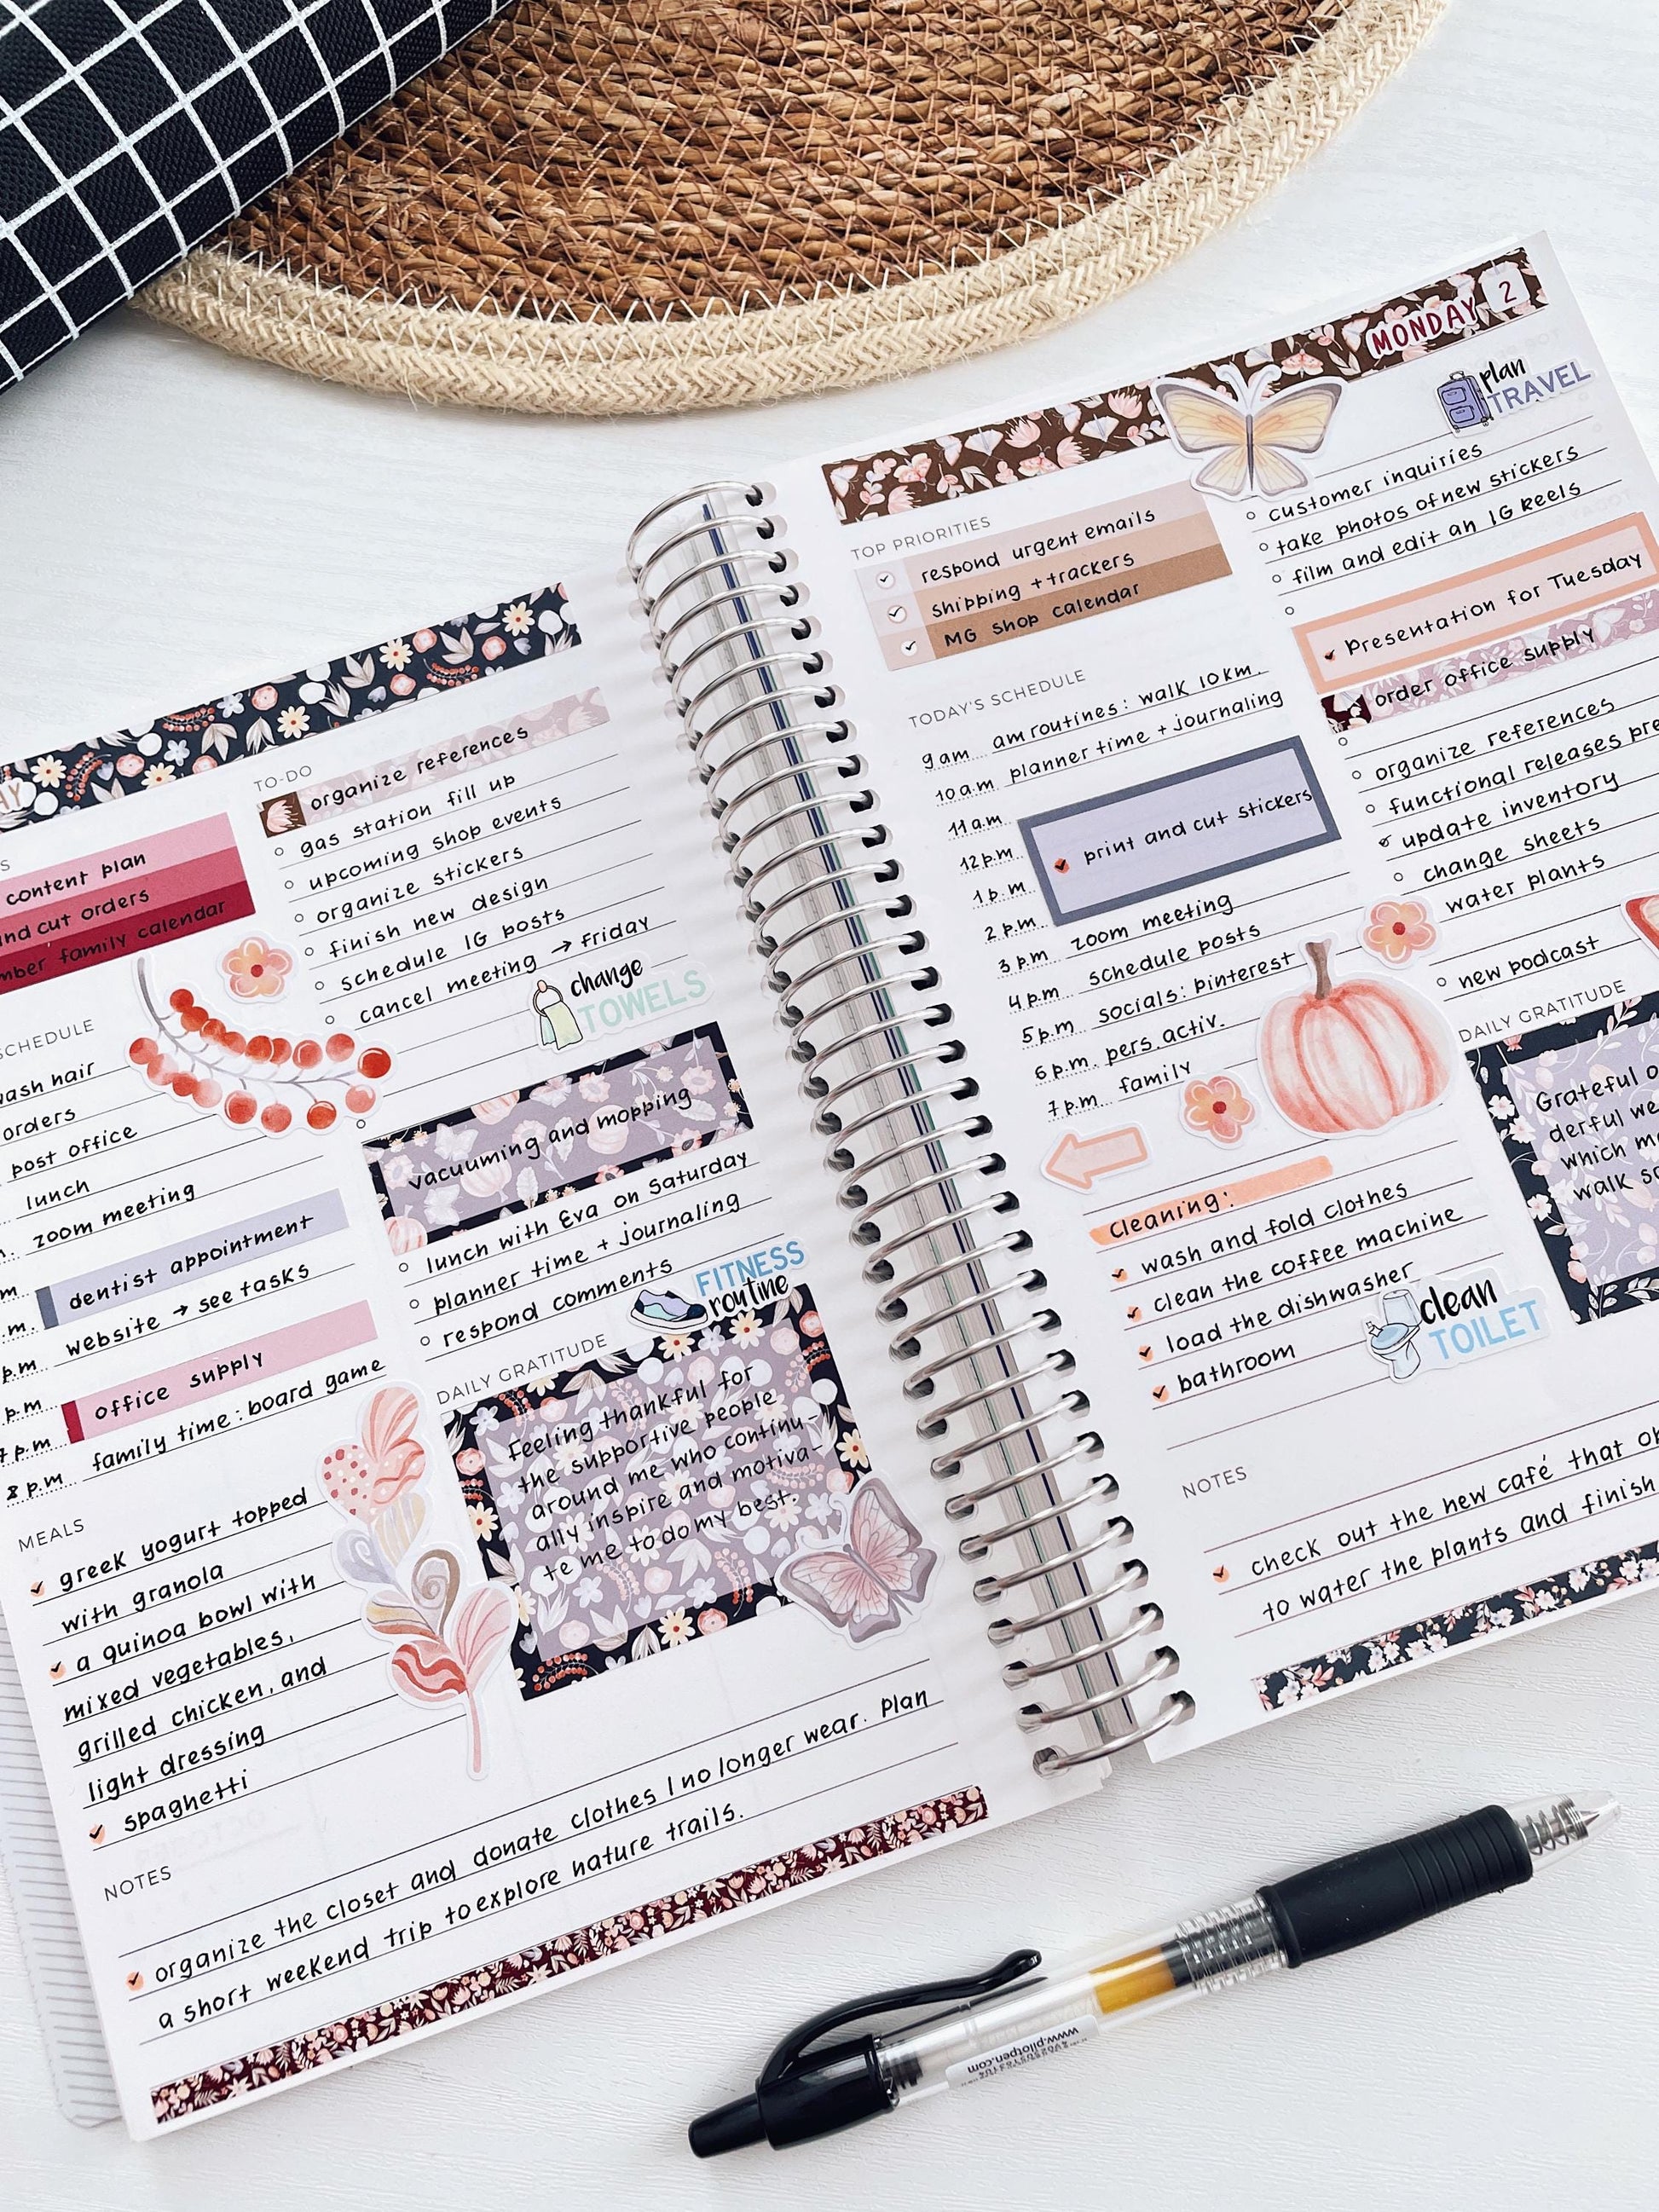 AY
S
content plan
and cut orders
mber family calendar
SCHEDULE
wash hair
orders
post office
lunch
zoom meeting
dentist appointment
website → see tasks
p.m
office supply
7 p.m
family time: board game
8 p.m.
MEALS
greek yogurt topped
with granola
a quinoa bowl with
mixed vegetables,
grilled chicken, and
light dressing
spaghetti
TO-DO
organize references
gas station fill up
upcoming shop events
organize stickers
finish new design
schedule IG posts
cancel meeting → Friday
change
TOWELS
vacuuming and mopping
lunch with Eva on Saturday
planner time + journaling
respond comments
FITNESS
routine
DAILY GRATITUDE
Feeling thankful for
the supportive people
around me who continu-
ally inspire and motiva-
te me to do my best.
NOTES
organize the closet and donate clothes I no longer wear. Plan
a short weekend trip to explore nature trails.
MONDAY 2
TOP PRIORITIES
respond urgent emails
shipping + trackers
MG Shop Calendar
TODAY'S SCHEDULE
9 am am routines: walk 10 km.
10 a.m planner time + journaling
11 a.m
12 p.m
print and cut stickers
1 p.m
2 p.m. zoom meeting
3 p.m schedule posts
4 p.m socials: pinterest
5 p.m pers. activ.
6 p.m. family
7 p.m.
Cleaning:
wash and fold clothes
clean the coffee machine
load the dishwasher
bathroom
clean
TOILET
plan
TRAVEL
customer inquiries
take photos of new stickers
film and edit an IG Reels
Presentation for Tuesday
order office supply
organize references
functional releases pre
update inventory
change sheets
water plants
new podcast
DAILY GRATITUDE
Grateful o
derful we
which m
walk so
NOTES
check out the new café that op
to water the plants and finish
www.pilotpen.com